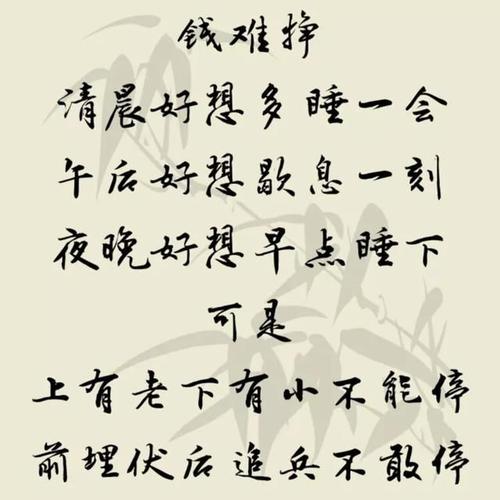 钱难挣
清晨好想多睡一会
午后好想歇息一刻
夜晚好想早点睡下
可是
上有老下有小不能停
前埋伏后追兵不敢停